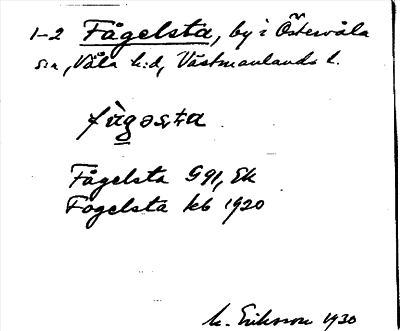 1-2 Fågelsta, by i Östervåla
sn, Våla h:d, Västmanlands l.
fågəsta
Fågelsta G91, Ek
Fogelsta kb 1920
K. Eriksson 1930